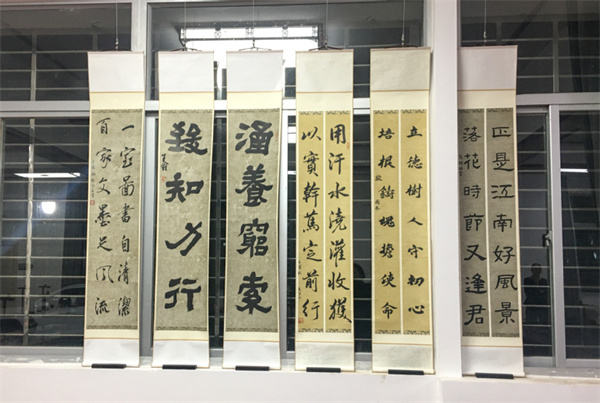 正是江南好風景
落花時節又逢君
立德樹人守初心
培根鑄魂擔使命
用汗水澆灌收獲
以實幹篤定前行
涵養窮索
致知力行
一室圖書自清潔
百家文墨足風流